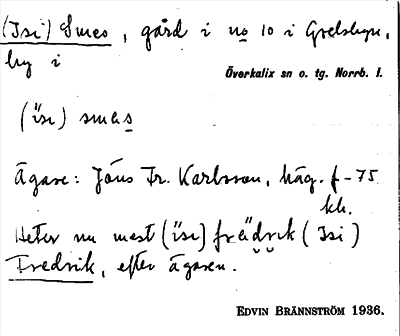 (Isi) Smes, gård i no 10 i Grelsbyn,
by i
Överkalix sn o. tg. Norrb. l.
(ïsı) smes
Ägare: Jöns Fr. Karlsson, häg. f-75
kh.
Heter nu mest (ïsı) frädrık (Isi)
Fredrik, efter ägaren.
EDVIN BRÄNNSTRÖM 1936.